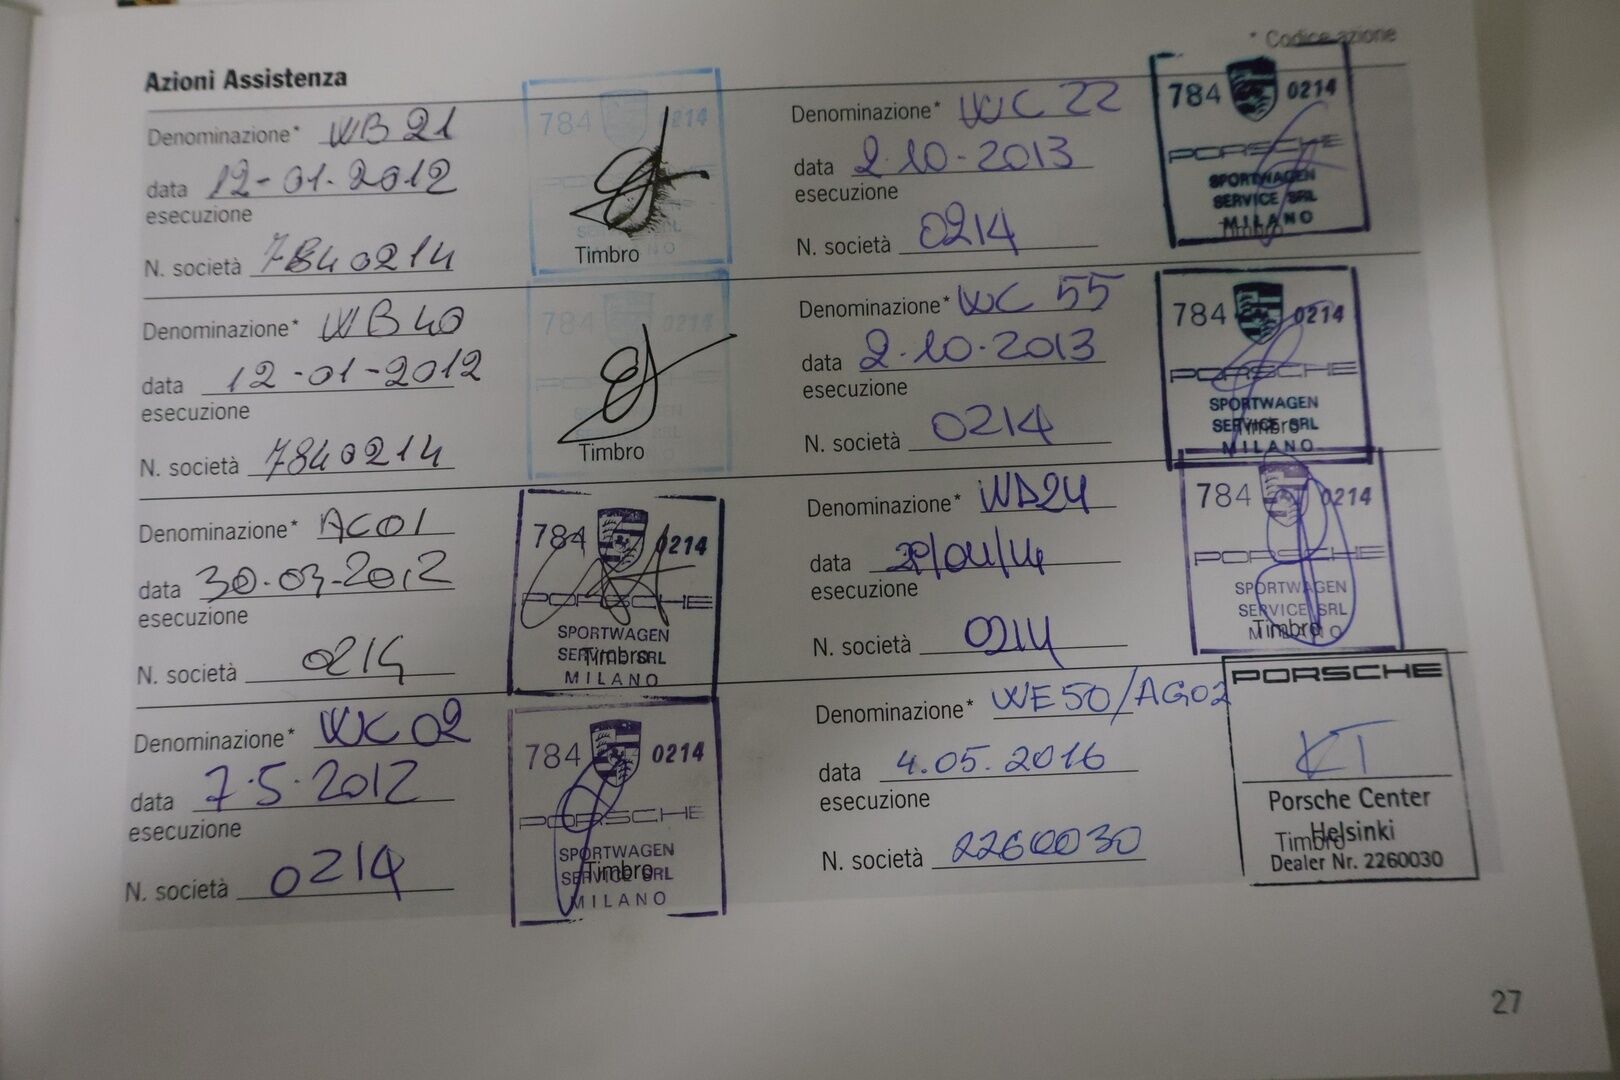 * Codice azione
Azioni Assistenza
Denominazione* WB 21
data 12-01-2012
esecuzione
N. società 7840214
784 0214
Timbro
Denominazione* WB 40
data 12-01-2012
esecuzione
N. società 7840214
784 0214
Timbro
Denominazione* AC01
data 30-03-2012
esecuzione
N. società 0214
784 0214
PORSCHE
SPORTWAGEN
SERVICE SRL
Timbro
MILANO
Denominazione* WC 02
data 7.5.2012
esecuzione
N. società 0214
784 0214
PORSCHE
SPORTWAGEN
SERVICE SRL
Timbro
MILANO
Denominazione* WC 22
data 2.10-2013
esecuzione
N. società 0214
784 0214
PORSCHE
SPORTWAGEN
SERVICE SRL
MILANO
Timbro
Denominazione* WC 55
data 2.10.2013
esecuzione
N. società 0214
784 0214
PORSCHE
SPORTWAGEN
SERVICE SRL
Timbro
MILANO
Denominazione* WD24
data /04/14
esecuzione
N. società 0214
784 0214
PORSCHE
SPORTWAGEN
SERVICE SRL
Timbro
MILANO
Denominazione* WE50/AG02
data 4.05.2016
esecuzione
N. società 2260030
PORSCHE
KT
Porsche Center
Helsinki
Timbro
Dealer Nr. 2260030
27